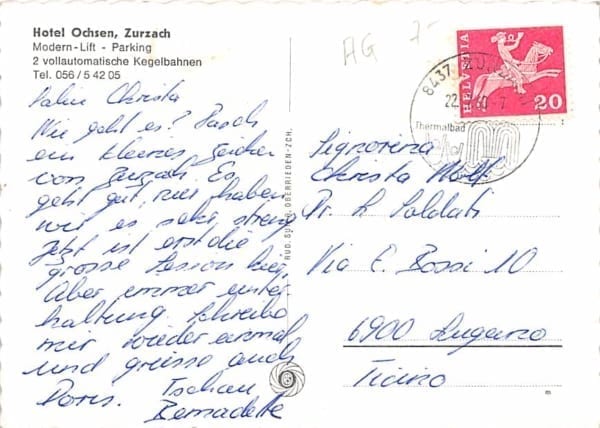 Hotel Ochsen, Zurzach
Modern-Lift - Parking
2 vollautomatische Kegelbahnen
Tel. 056 / 5 42 05
Salü Christa
Wie geht es? Rasch
ein kleines Zeichen
von Zurzach. Es
geht gut, nur haben
wir es sehr streng
Jetzt ist erst die
grosse Saison hier,
Aber immer unter
haltung. Schreibe
mir wieder einmal
und grüsse auch
Doris. Tschau
Bernadette
RUD. SUTER, OBERRIEDEN-ZCH.
AG 7-
HELVETIA
20
8437 ZUR
22.
Thermalbad
Signorina
Christa Wolf
Pr. L. Soldati
Via E. Bossi 10
6900 Lugano
Ticino